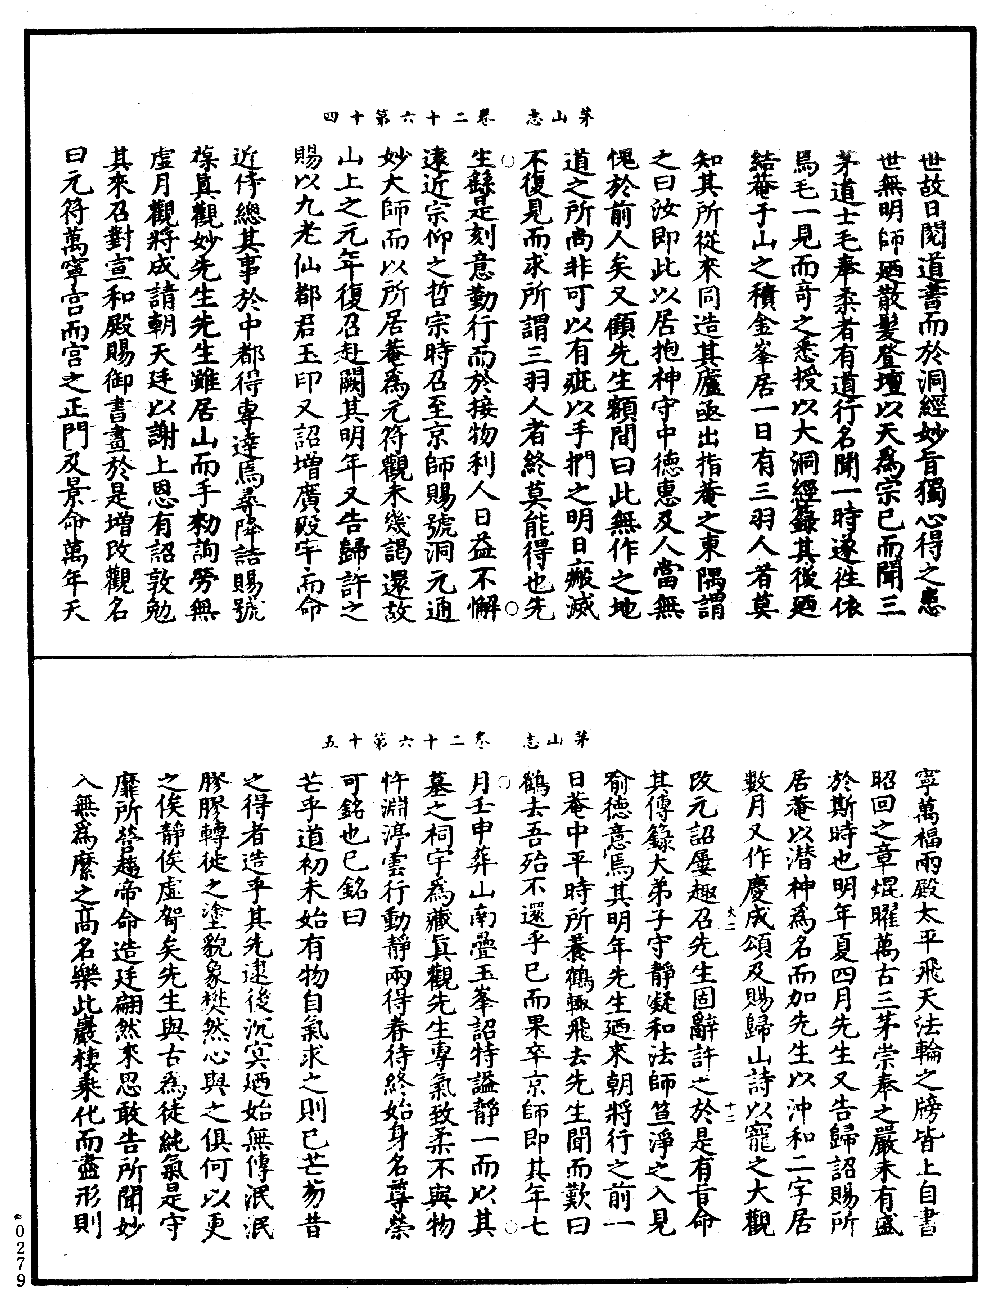 茅山志　卷二十六第十四
世故日閱道書而於洞經妙旨獨心得之患
世無明師廼散髮登壇以天爲宗已而聞三
茅道士毛奉柔者有道行名聞一時遂往依
焉毛一見而奇之悉授以大洞經籙其後廼
結菴于山之積金峯居一日有三羽人者莫
知其所從來同造其廬亟出指菴之東隅謂
之曰汝即此以居抱神守中德惠及人當無
愧於前人矣又顧先生額間曰此無作之地
道之所尚非可以有疵以手捫之明日瘢滅
不復見而求所謂三羽人者終莫能得也先
生繇是刻意勤行而於接物利人日益不懈
遠近宗仰之哲宗時召至京師賜號洞元通
妙大師而以所居菴爲元符觀未幾謁還故
山上之元年復召赴闕其明年又告歸許之
賜以九老仙都君玉印又詔增廣殿宇而命
近侍總其事於中都得專達焉尋降誥賜號
葆真觀妙先生先生雖居山而手勑詢勞無
虛月觀將成請朝天廷以謝上恩有詔敦勉
其來召對宣和殿賜御書畫於是增改觀名
曰元符萬寧宮而宮之正門及景命萬年天
茅山志　卷二十六第十五
寧萬福兩殿太平飛天法輪之牓皆上自書
昭回之章焜曜萬古三茅崇奉之嚴未有盛
於斯時也明年夏四月先生又告歸詔賜所
居菴以潛神爲名而加先生以沖和二字居
數月又作慶成頌及賜歸山詩以寵之大觀
改元詔屢趣召先生固辭許之於是有旨命
其傳籙大弟子守靜凝和法師笪淨之入見
喻德意焉其明年先生廼來朝將行之前一
日菴中平時所養鶴輒飛去先生聞而歎曰
鶴去吾殆不還乎已而果卒京師即其年七
月壬申葬山南疊玉峯詔特謚靜一而以其
墓之祠宇爲藏真觀先生專氣致柔不與物
忤淵渟雲行動靜兩得眷待終始身名尊榮
可銘也已銘曰
芒乎道初未始有物自氣求之則已芒芴昔
之得者造乎其先逮後沉冥廼始無傳泯泯
膠膠轉徙之塗貌象㷼然心與之俱何以更
之俟靜俟虛智矣先生與古爲徒純氣是守
靡所營趨帝命造廷翩然來思敢告所聞妙
入無爲縻之高名樂此巖棲乘化而盡形則
0279